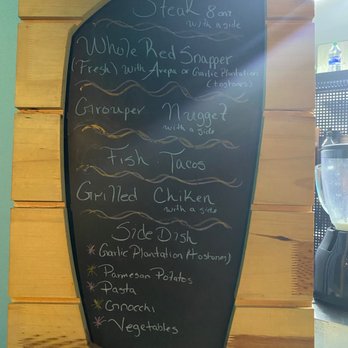 Steak 8oz
with a side
Whole Red Snapper
(Fresh) with Arepa or Garlic Plantation
(tostones)
Grouper Nugget
with a side
Fish Tacos
Grilled Chiken
with a side
Side Dish
* Garlic Plantation (tostones)
* Parmeson Potatos
* Pasta
* Gnocchi
* Vegetables